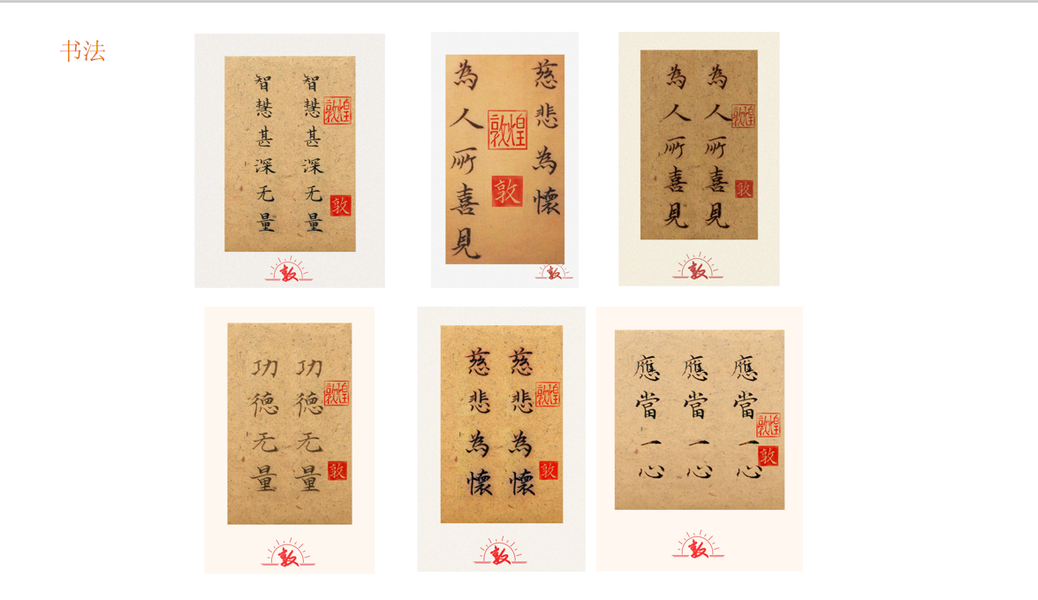 书法
智慧甚深无量
智慧甚深无量
敦煌
敦
敦
慈悲為懷
敦煌
敦
為人所喜見
敦
為人所喜見
為人所喜見
敦煌
敦
敦
功德无量
功德无量
敦煌
敦
敦
慈悲為懷
慈悲為懷
敦煌
敦
敦
應當一心
應當一心
應當一心
敦煌
敦
敦